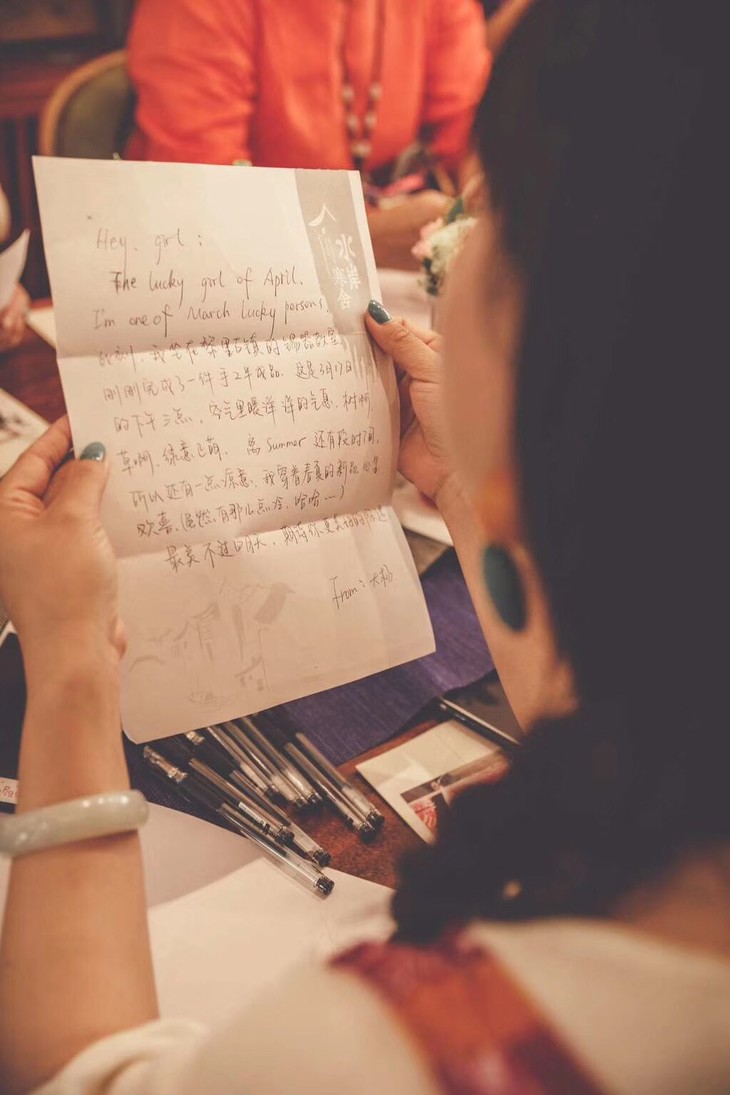 Hey, girl:
The lucky girl of April.
I'm one of March lucky persons.
此刻,我坐在 的
刚刚完成了一件手工年成品. 这是3月17日
的下午三点,空气里暖洋洋的气息,树啊,
草啊,绿意已萌. 离Summer还有段时间,
所以还有一点凉意,我穿着春夏的新
欢喜,虽然有那么点冷,哈哈...)
最美不过 ,期待你
From:大
水岸
寒舍